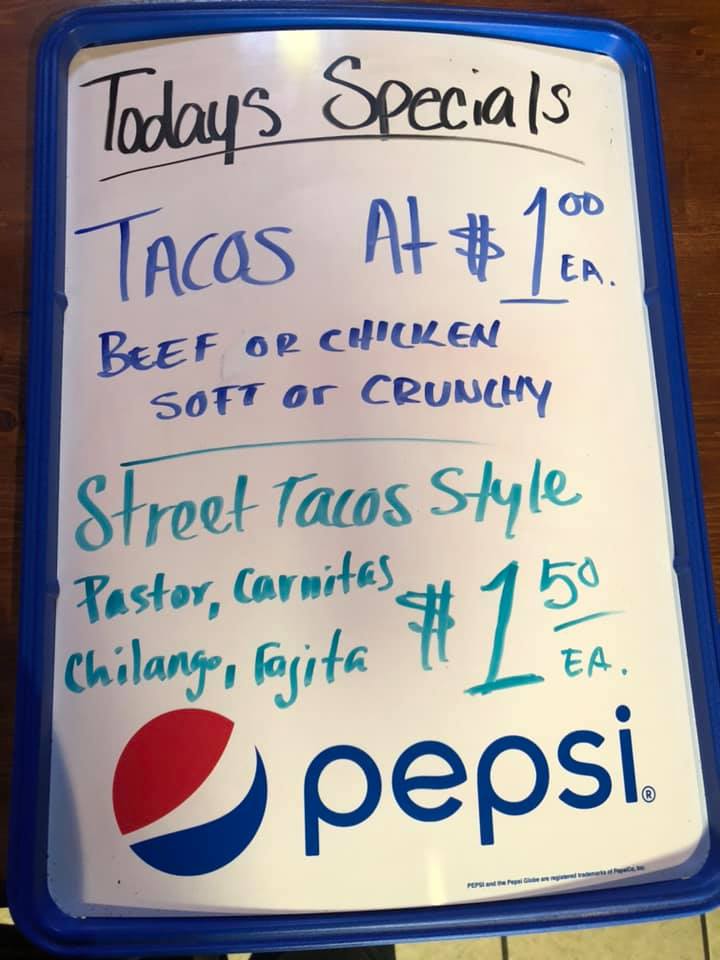 Todays Specials
TACOS At $1.00 EA.
BEEF OR CHICKEN
SOFT or CRUNCHY
Street Tacos Style
Pastor, Carnitas
Chilango, Fajita $1.50 EA.
pepsi®
PEPSI and the Pepsi Globe are registered trademarks of PepsiCo, Inc.